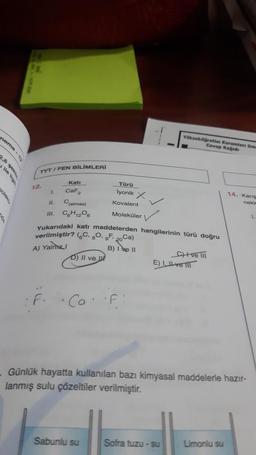 Yükseköğretim Kurumları
Cevap Kağıdı
TYT / FEN BİLİMLERİ
12.
Katı Türü
I. CaF₂ İyonik
II. C(elmas) Kovalent
III. C₆H₁₂O₆ Moleküler
Yukarıdaki katı maddelerden hangilerinin türü doğru
verilmiştir? (₆C, ₈O, ₉F, ₂₀Ca)
A) Yalnız I B) I ve II C) I ve III
D) II ve III E) I, II ve III
F Ca F
14.
Günlük hayatta kullanılan bazı kimyasal maddelerle hazır-
lanmış sulu çözeltiler verilmiştir.
Sabunlu su Sofra tuzu - su Limonlu su